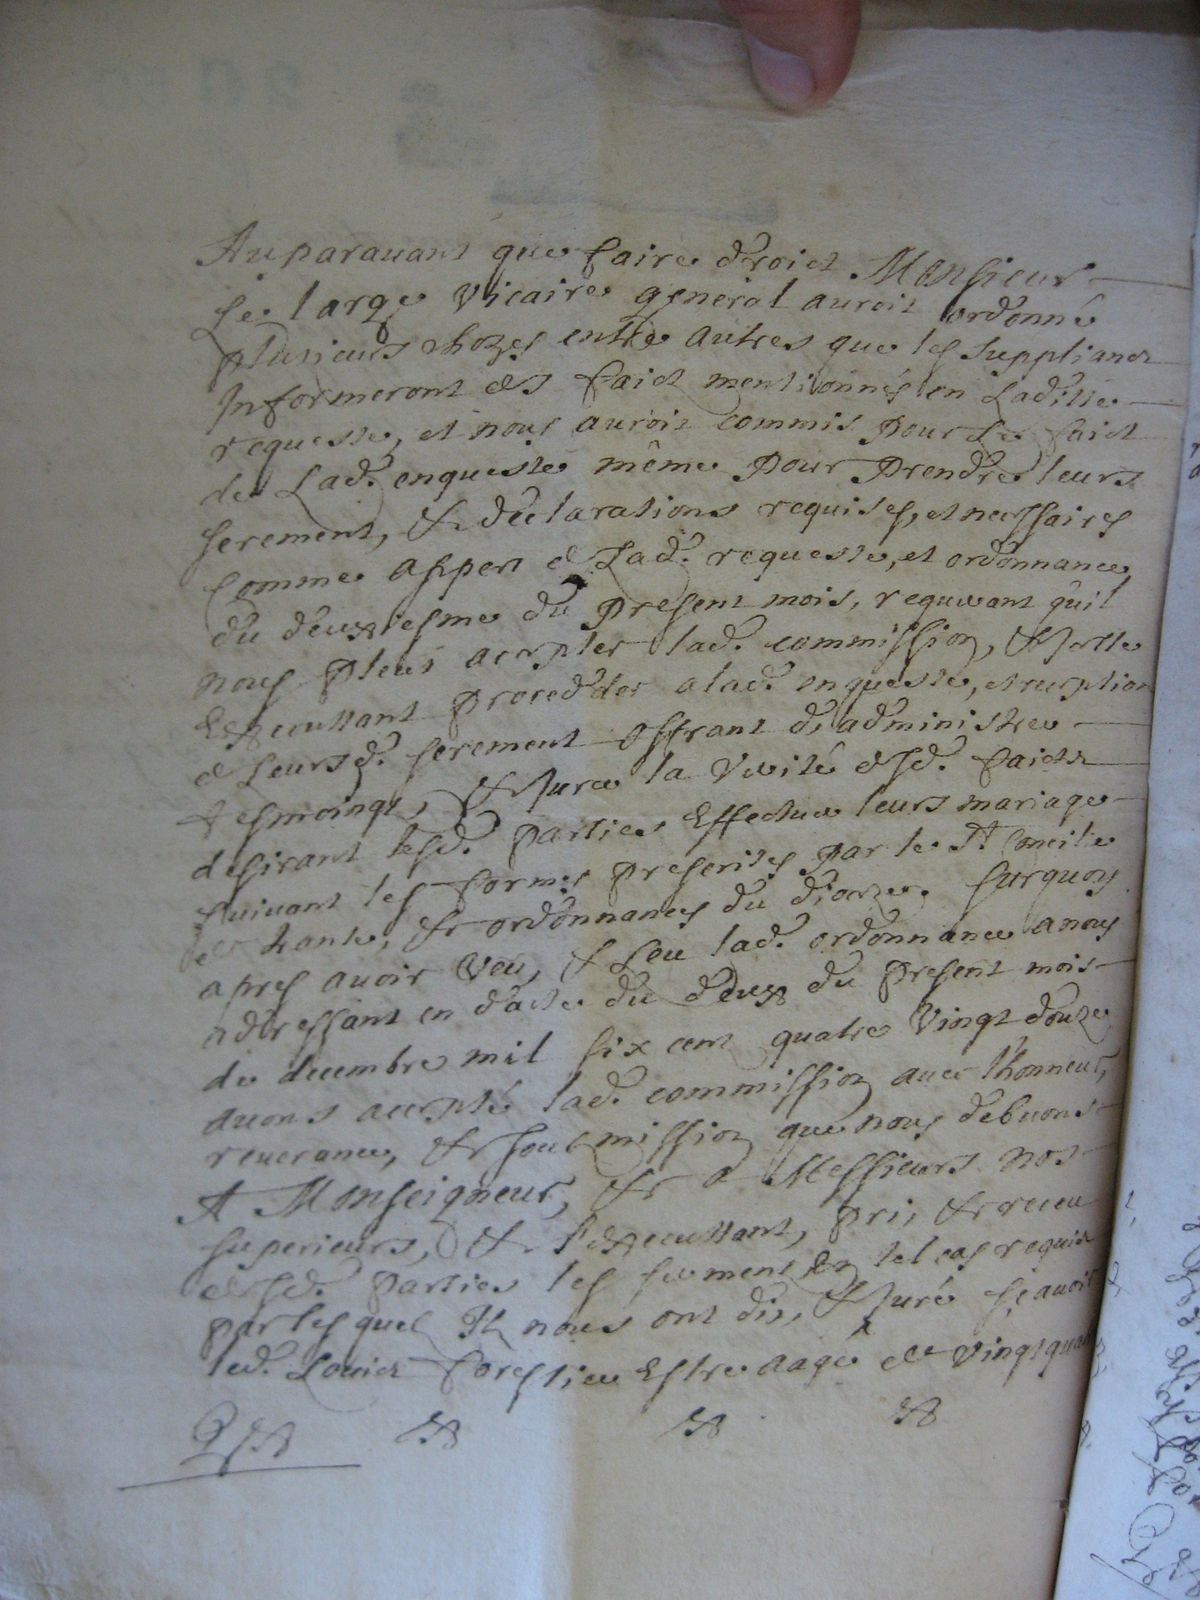 Auparauant que faire droict Monsieur
Le large Vicaire general auroit ordonné
plusieurs chozes entre autres que les suppliants
Informeront des faict mentionnés en Laditte
requeste, et nous auroit commis pour Le faict
de Lad. enqueste même pour prendre leurs
serement, & declarations requises, et necessaires
Comme appert de Lad. requeste, et ordonnance
du deuxiesme du present mois, requerant quil
nous pleut accepter lad. commission, &
Executtant procedder a lad. enqueste, et reception
de Leursd. serement offrant d'administrer
tesmoingt, & Jurer la Verité desd. faicts
desirant lesd. parties Effectuer leurs mariage
suiuant les formes prescrites par le St Concile
de trante, & ordonnances du dioceze. surquoy
apres auoir Veu, & Leu lad. ordonnance a nous
addressant en datte du deux du present mois
de decembre mil six cent quatre Vingt douze
auons accepté lad. commission auec l'honneur,
reuerance, & soubmission que nous debuons
A Monseigneur, & a Messieurs nos
superieurs, & l'executtant, pri, & receu
desd. parties les serment En tel cas requis
par lesquel Ils nous ont dit, & Juré sçauoir
led. Louis forestier Estre aagé de Vingt quatre